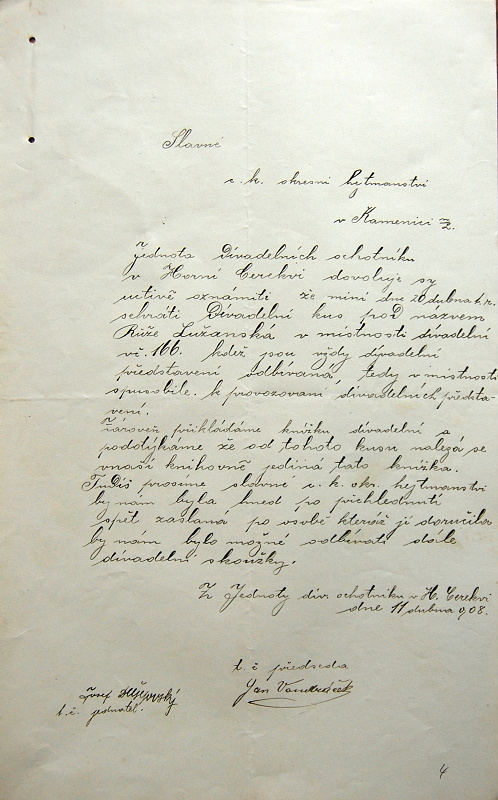 Slavné
c. k. okresní hejtmanství
v Kamenici L.
Jednota divadelních ochotníku
v Horní Cerekvi dovoluje sy
uctivě oznámiti že míní dne 20 dubna t. r.
sehráti Divadelní kus poD názvem
Růže Lužanská v místnosti divadelní
v č. 166. kdež jsou vždy divadelní
představení odbívaná, tedy v místnosti
spusobile. k provozovaní divadelních předsta-
vení.
Zároveň přikládáme knížku divadelní a
podotýkáme že od tohoto kusu nalezá se
vnaší knihovně jediná tato knížka.
TuDíš prosíme slavné c. k. okr. hejtmanství
by nám byla hned po přehlednutí
spět zaslana po osobě kteráž jí doručila
by nám bylo možné odbívati dále
divadelní skoušky.
Za Jednoty div. ochotníku v H. Cerekvi
dne 11 dubna 908.
t. č. předseda
Jan
Josef
t. č. jednatel.
4